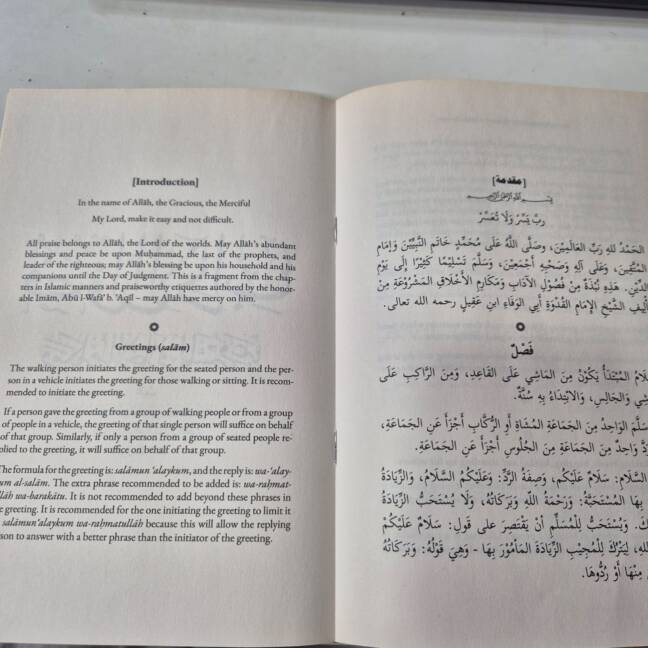 [Introduction]
In the name of Allāh, the Gracious, the Merciful
My Lord, make it easy and not difficult.
All praise belongs to Allāh, the Lord of the worlds. May Allāh's abundant
blessings and peace be upon Muḥammad, the last of the prophets, and
leader of the righteous; may Allāh's blessing be upon his household and his
companions until the Day of Judgment. This is a fragment from the chap-
ters in Islamic manners and praiseworthy etiquettes authored by the honor-
able Imām, Abū l-Wafā' b. 'Aqīl – may Allāh have mercy on him.
Greetings (salām)
The walking person initiates the greeting for the seated person and the per-
son in a vehicle initiates the greeting for those walking or sitting. It is recom-
mended to initiate the greeting.
If a person gave the greeting from a group of walking people or from a group
of people in a vehicle, the greeting of that single person will suffice on behalf
of that group. Similarly, if only a person from a group of seated people re-
plied to the greeting, it will suffice on behalf of that group.
The formula for the greeting is: salāmun 'alaykum, and the reply is: wa-'alay-
kum al-salām. The extra phrase recommended to be added is: wa-raḥmat-
ullāh wa-barakātu. It is not recommended to add beyond these phrases in
he greeting. It is recommended for the one initiating the greeting to limit it
salāmun'alaykum wa-raḥmatullāh because this will allow the replying
son to answer with a better phrase than the initiator of the greeting.
[مقدمة]
بِسْمِ اللَّهِ الرَّحْمَنِ الرَّحِيمِ
رَبِّ يَسِّرْ وَلَا تُعَسِّرْ
الحَمْدُ للهِ رَبِّ العَالَمِيْنَ، وَصَلَّى اللَّهُ عَلَى مُحَمَّدٍ خَاتَمِ النَّبِيِّيْنَ وَإِمَامِ
المُتَّقِيْنَ، وَعَلَى آلِهِ وَصَحْبِهِ أَجْمَعِيْنَ، وَسَلَّمَ تَسْلِيْمًا كَثِيْرًا إِلَى يَوْمِ
الدِّيْنِ. هَذِهِ نُبْذَةٌ مِنْ فُصُوْلِ الآدَابِ وَمَكَارِمِ الأَخْلَاقِ المَشْرُوْعَةِ مِنْ
تَأْلِيفِ الشَّيْخِ الإِمَامِ القُدْوَةِ أَبِي الوَفَاءِ ابْنِ عَقِيلٍ رحمه الله تعالى.
فَصْلٌ
السَّلَامُ المُبْتَدَأُ يَكُوْنُ مِنَ المَاشِي عَلَى القَاعِدِ، وَمِنَ الرَّاكِبِ عَلَى
المَاشِي وَالجَالِسِ، وَالابْتِدَاءُ بِهِ سُنَّةٌ.
سَلَّمَ الوَاحِدُ مِنَ الجَمَاعَةِ المُشَاةِ أَوِ الرُّكَّابِ أَجْزَأَ عَنِ الجَمَاعَةِ،
رَدَّ وَاحِدٌ مِنَ الجَمَاعَةِ مِنَ الجُلُوْسِ أَجْزَأَ عَنِ الجَمَاعَةِ.
السَّلَامِ: سَلَامٌ عَلَيْكُم، وَصِفَةُ الرَّدِّ: وَعَلَيْكُمُ السَّلَامُ، وَالزِّيَادَةُ
بِهَا المُسْتَحَبَّةُ: وَرَحْمَةُ اللهِ وَبَرَكَاتُهُ، وَلَا يُسْتَحَبُّ الزِّيَادَةُ
وَيُسْتَحَبُّ لِلْمُسَلِّمِ أَنْ يَقْتَصِرَ على قَولِ: سَلَامٌ عَلَيْكُمْ
لِيَتْرُكَ لِلْمُجِيْبِ الزِّيَادَةَ المَأْمُوْرَ بِهَا - وَهِيَ قَوْلُهُ: وَبَرَكَاتُهُ
مِنْهَا أَوْ رُدُّوهَا.